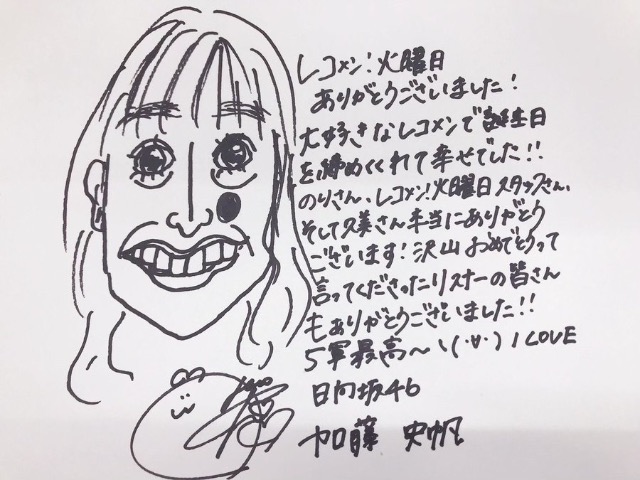 レコメン!火曜日
ありがとうございました!
大好きなレコメンで誕生日
を締めくくれて幸せでした!!
のりさん、レコメン!火曜日スタッフさん、
そして久美さん本当にありがとう
ございます!沢山おめでとうって
言ってくださったリスナーの皆さん
もありがとうございました!!
5軍最高〜ヽ(･∀･)ノLOVE
日向坂46
加藤 史帆